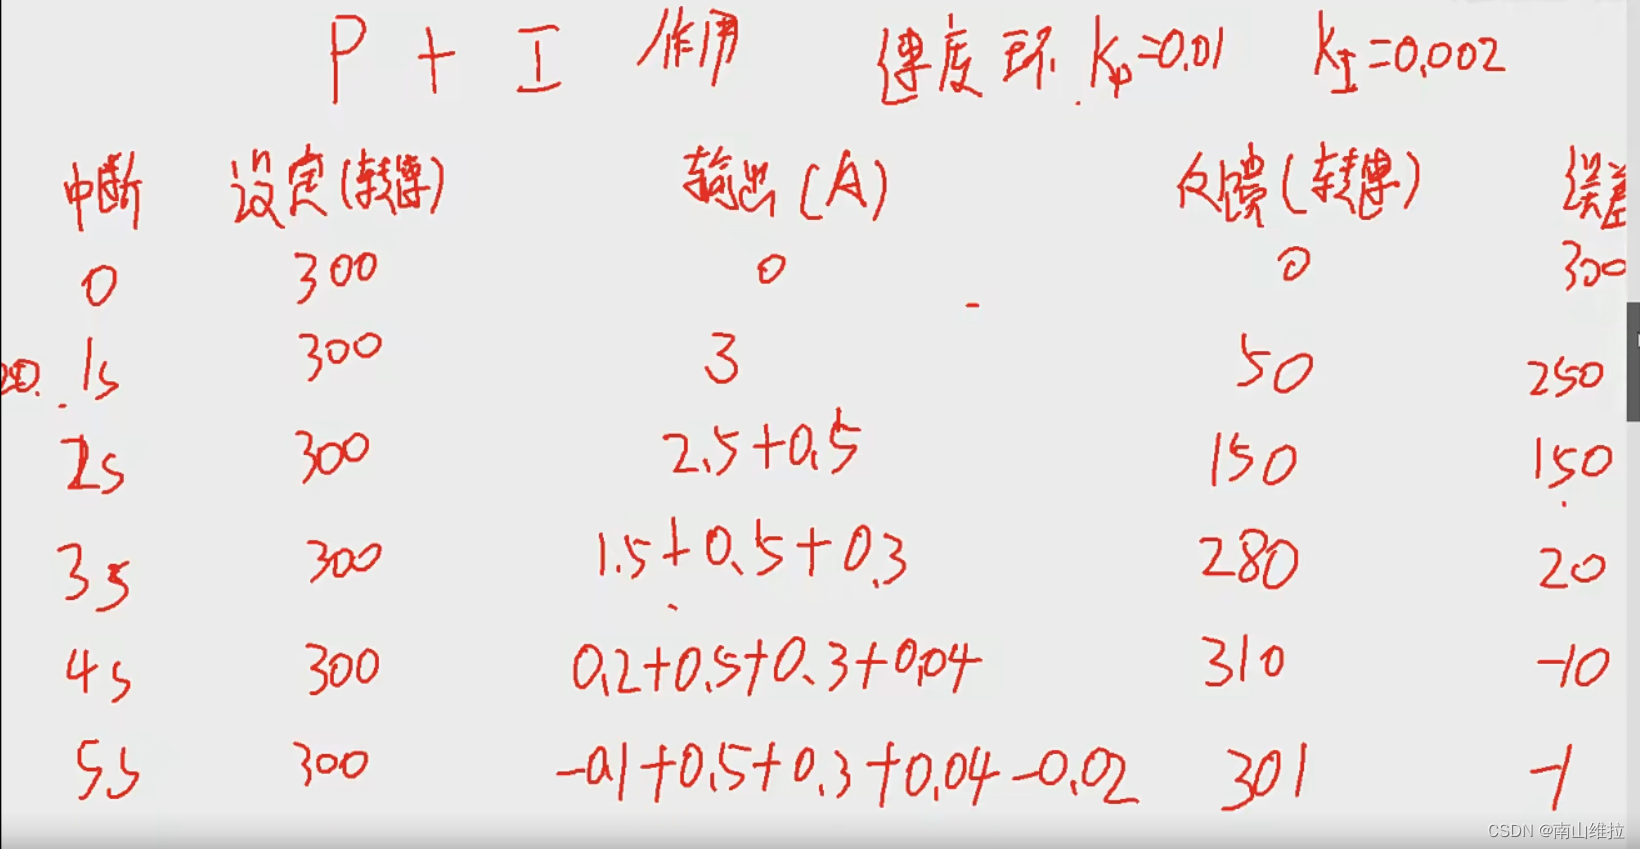 P + I 作用 速度环 Kp=0.01 KI=0.002
中断 设定(转速) 输出(A) 反馈(转速) 误差
0 300 0 0 300
1s 300 3 50 250
2s 300 2.5+0.5 150 150
3s 300 1.5+0.5+0.3 280 20
4s 300 0.2+0.5+0.3+0.04 310 -10
5s 300 -0.1+0.5+0.3+0.04-0.02 301 -1
CSDN @南山维拉